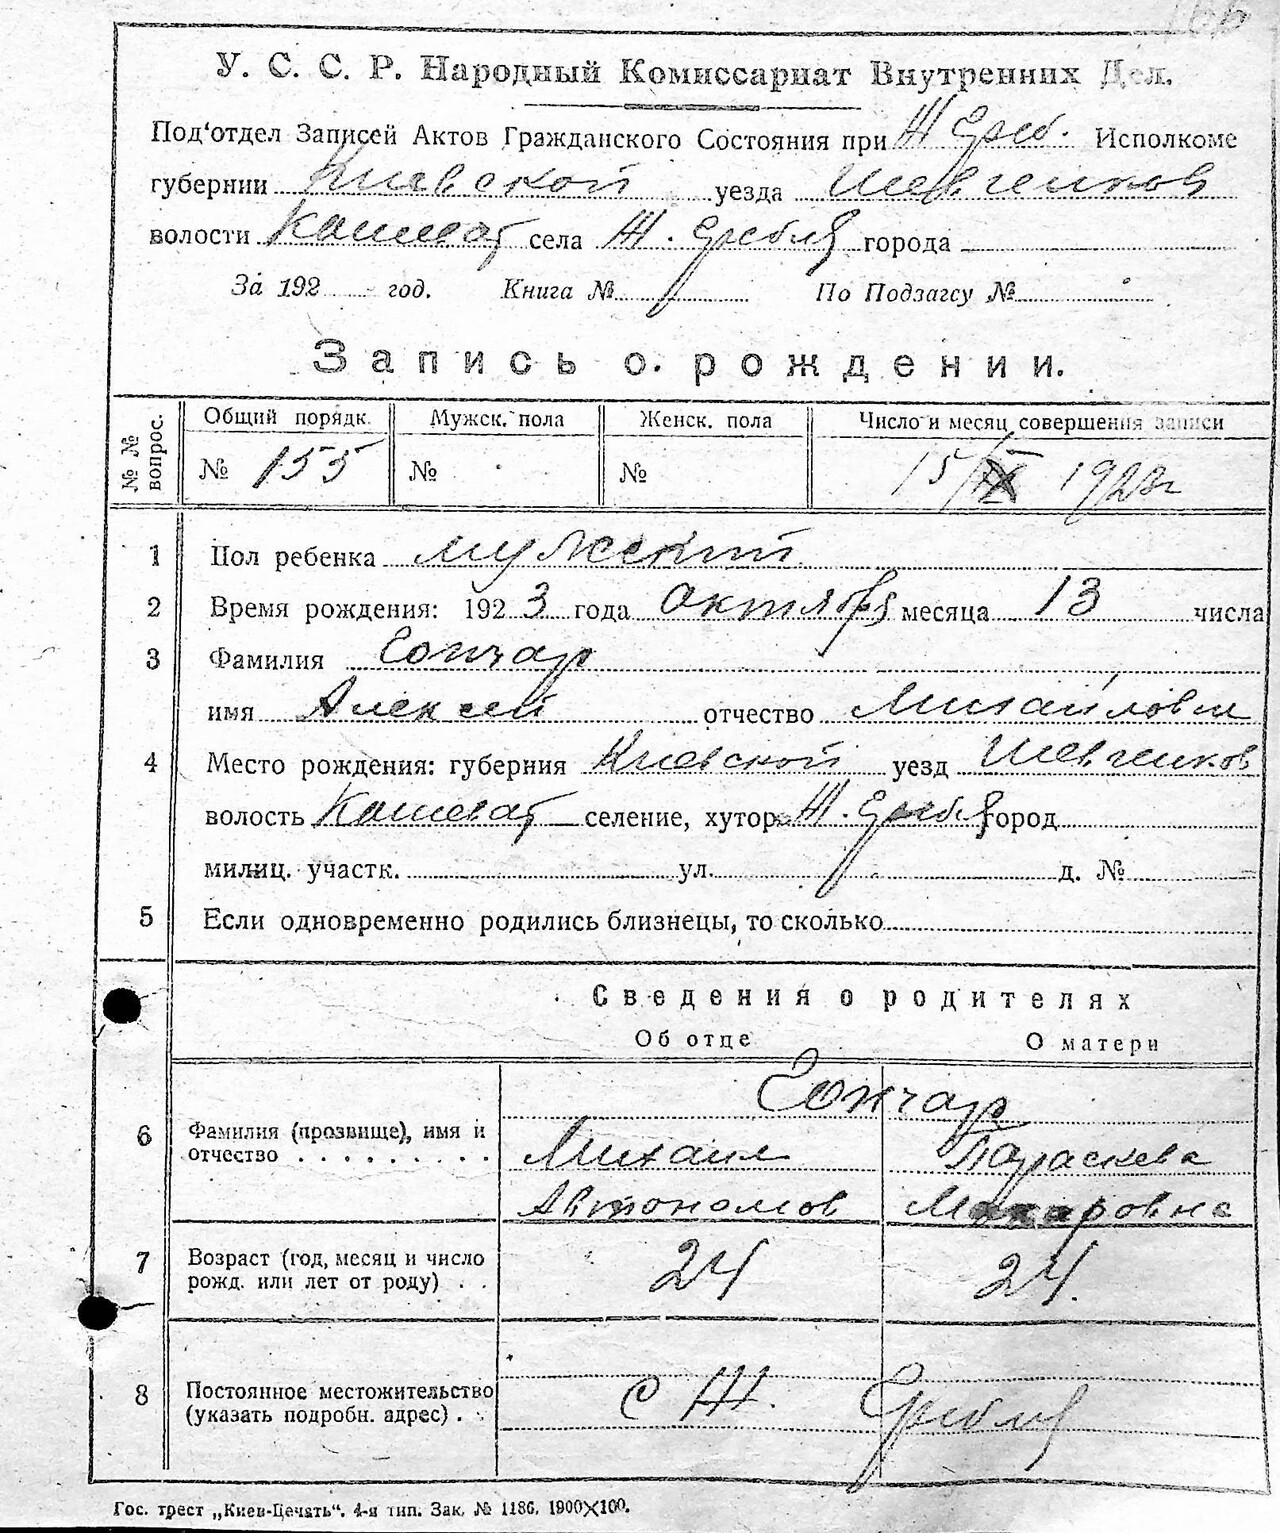 У. С. С. Р. Народный Комиссариат Внутренних Дел.
Под'отдел Записей Актов Гражданского Состояния при Ж Греб. Исполкоме
губернии Киевской уезда Шевченков
волости Кошеват села Ж. Гребля города
За 192 год. Книга № По Подзагсу №
Запись о рождении.
№ № вопрос.
Общий порядк. Мужск. пола Женск. пола Число и месяц совершения записи
№ 155 № № 15/ 1923г
1 Пол ребенка мужский
2 Время рождения: 1923 года октября месяца 13 числа
3 Фамилия Гончар
имя Алексей отчество Михайлович
4 Место рождения: губерния Киевской уезд Шевченков
волость Кошеват селение, хутор Ж. Гребля город
милиц. участк. ул. д. №
5 Если одновременно родились близнецы, то сколько
Сведения о родителях
Об отце О матери
Гончар
6 Фамилия (прозвище), имя и отчество Михаил Параскева
Автономов Макаровна
7 Возраст (год, месяц и число рожд. или лет от роду) 24 24.
8 Постоянное местожительство (указать подробн. адрес) С Ж. Гребля
Гос. трест „Киев-Печать". 4-я тип. Зак. № 1186. 1900×100.